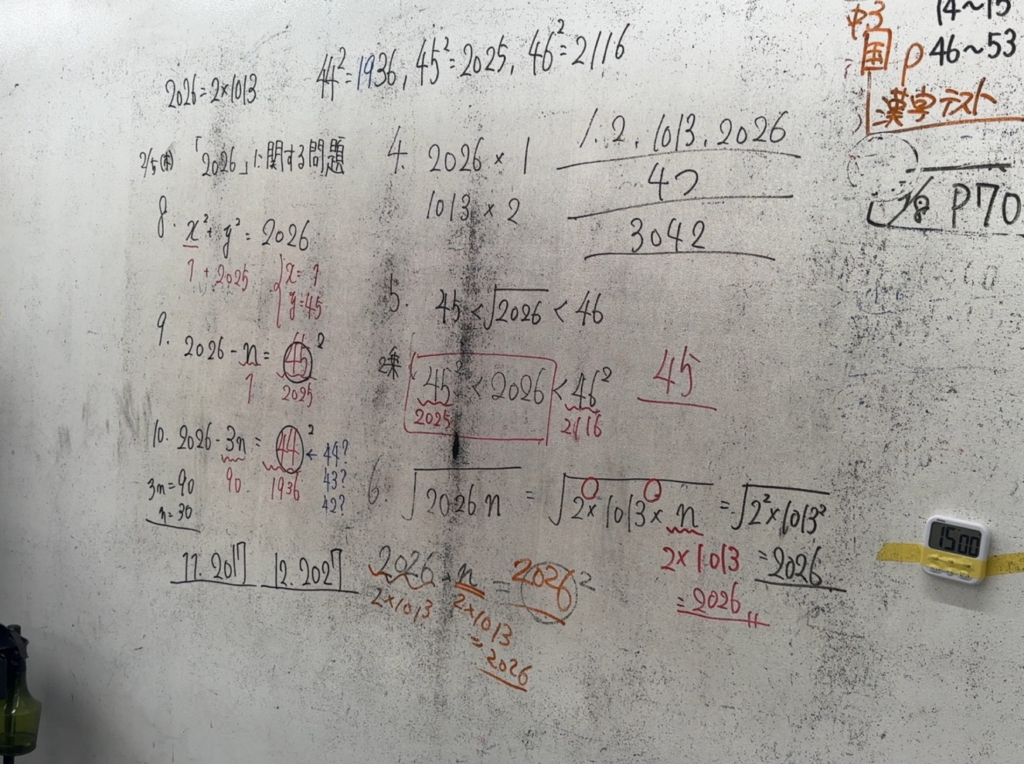 2026=2×1013
44²=1936, 45²=2025, 46²=2116
2/5㈭ 「2026」に関する問題
8. x²+y²=2026
1+2025
x=1
y=45
9. 2026-n=45²
1
2025
10. 2026-3n=44² ← 44?
90
1936
43?
42?
3n=90
n=30
11. 2017 12. 2027
4. 2026×1
1013×2
1. 2. 1013. 2026
4つ
3042
5. 45<√2026<46
45²<2026<46²
2025
2116
45
6. √2026n = √2×1013×n = √2²×1013²
2×1013
=2026
=2026
2026・n=2026²
2×1013
2×1013
=2026
中3
14~15
国 P46~53
漢字テスト
P70
1500